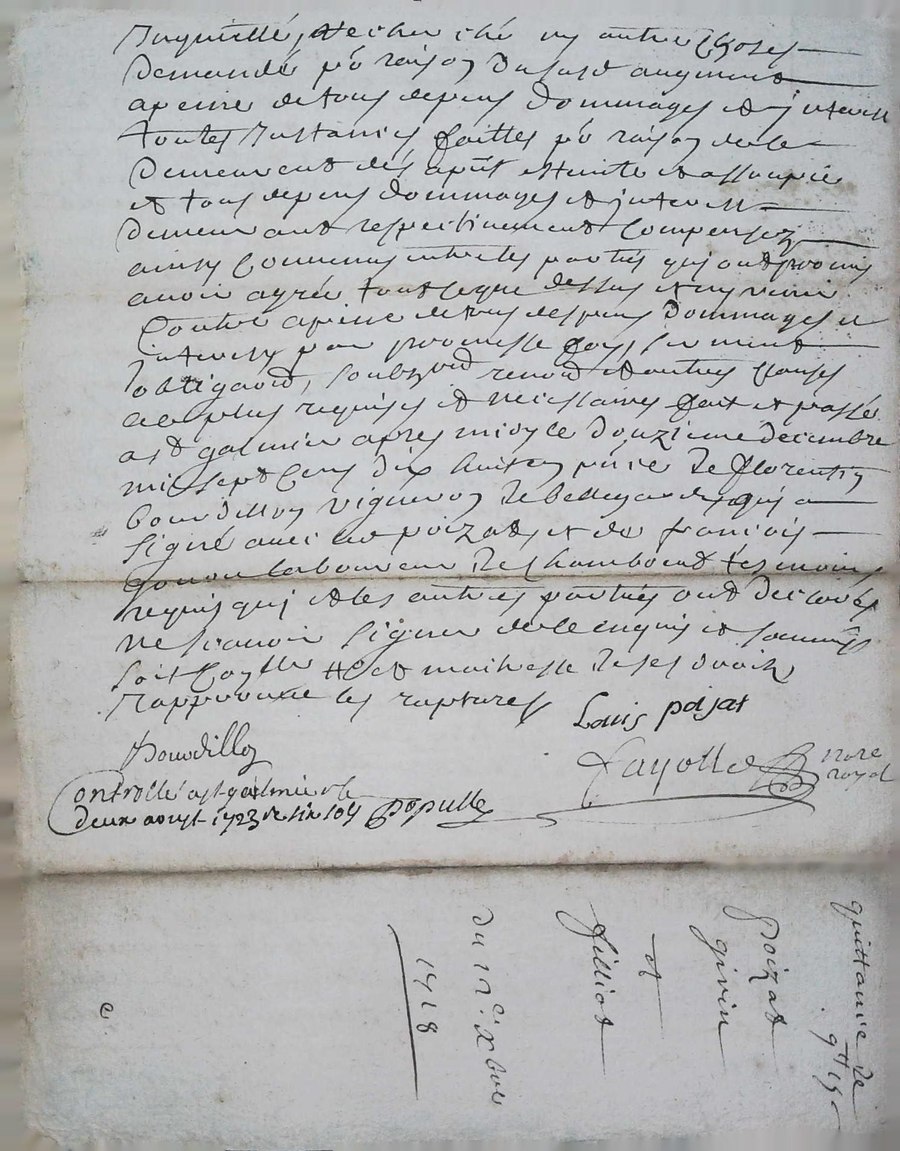 Inquietté, Recherché ny autre Choses
Demandé p̄o raison dususd augment
apeine de tous depens Dommages et interest
toutes Instances faittes p̄o raison de ce
Demeurent des apñt esteinte et assoupie
et tous depens dommages et interest
demeurant respectivement Compensez
ainsy Convenus entre les parties qui ont promis
avoir agrée tout ceque dessus et ny venir
Contre apeine de tous despens Dommages et
interests par promesse foy, serment
obligaoñ, soubzmis renoñ et autres Clauses
requises et necessaires fait et passé
a St galmier apres midy le Douzieme decembre
mil sept Cens dix huit en pñce de florentin
bourdillon vigneron de bellegarde qui a
signé avec led poizat, et de francois
laboureur de Chambeuf tesmoins
requis qui et les autres parties ont declarés
ne scavoir signer de ce enquis et sommés
soit
Rapprouvé les ruptures
Louis poizat
Bourdillon
fayolle nore
royal
Controllé a st galmier le
deux aoust 1723 six sols Populle
quittance de
poizat
girin
et
filliot
du 12e xbre
1718